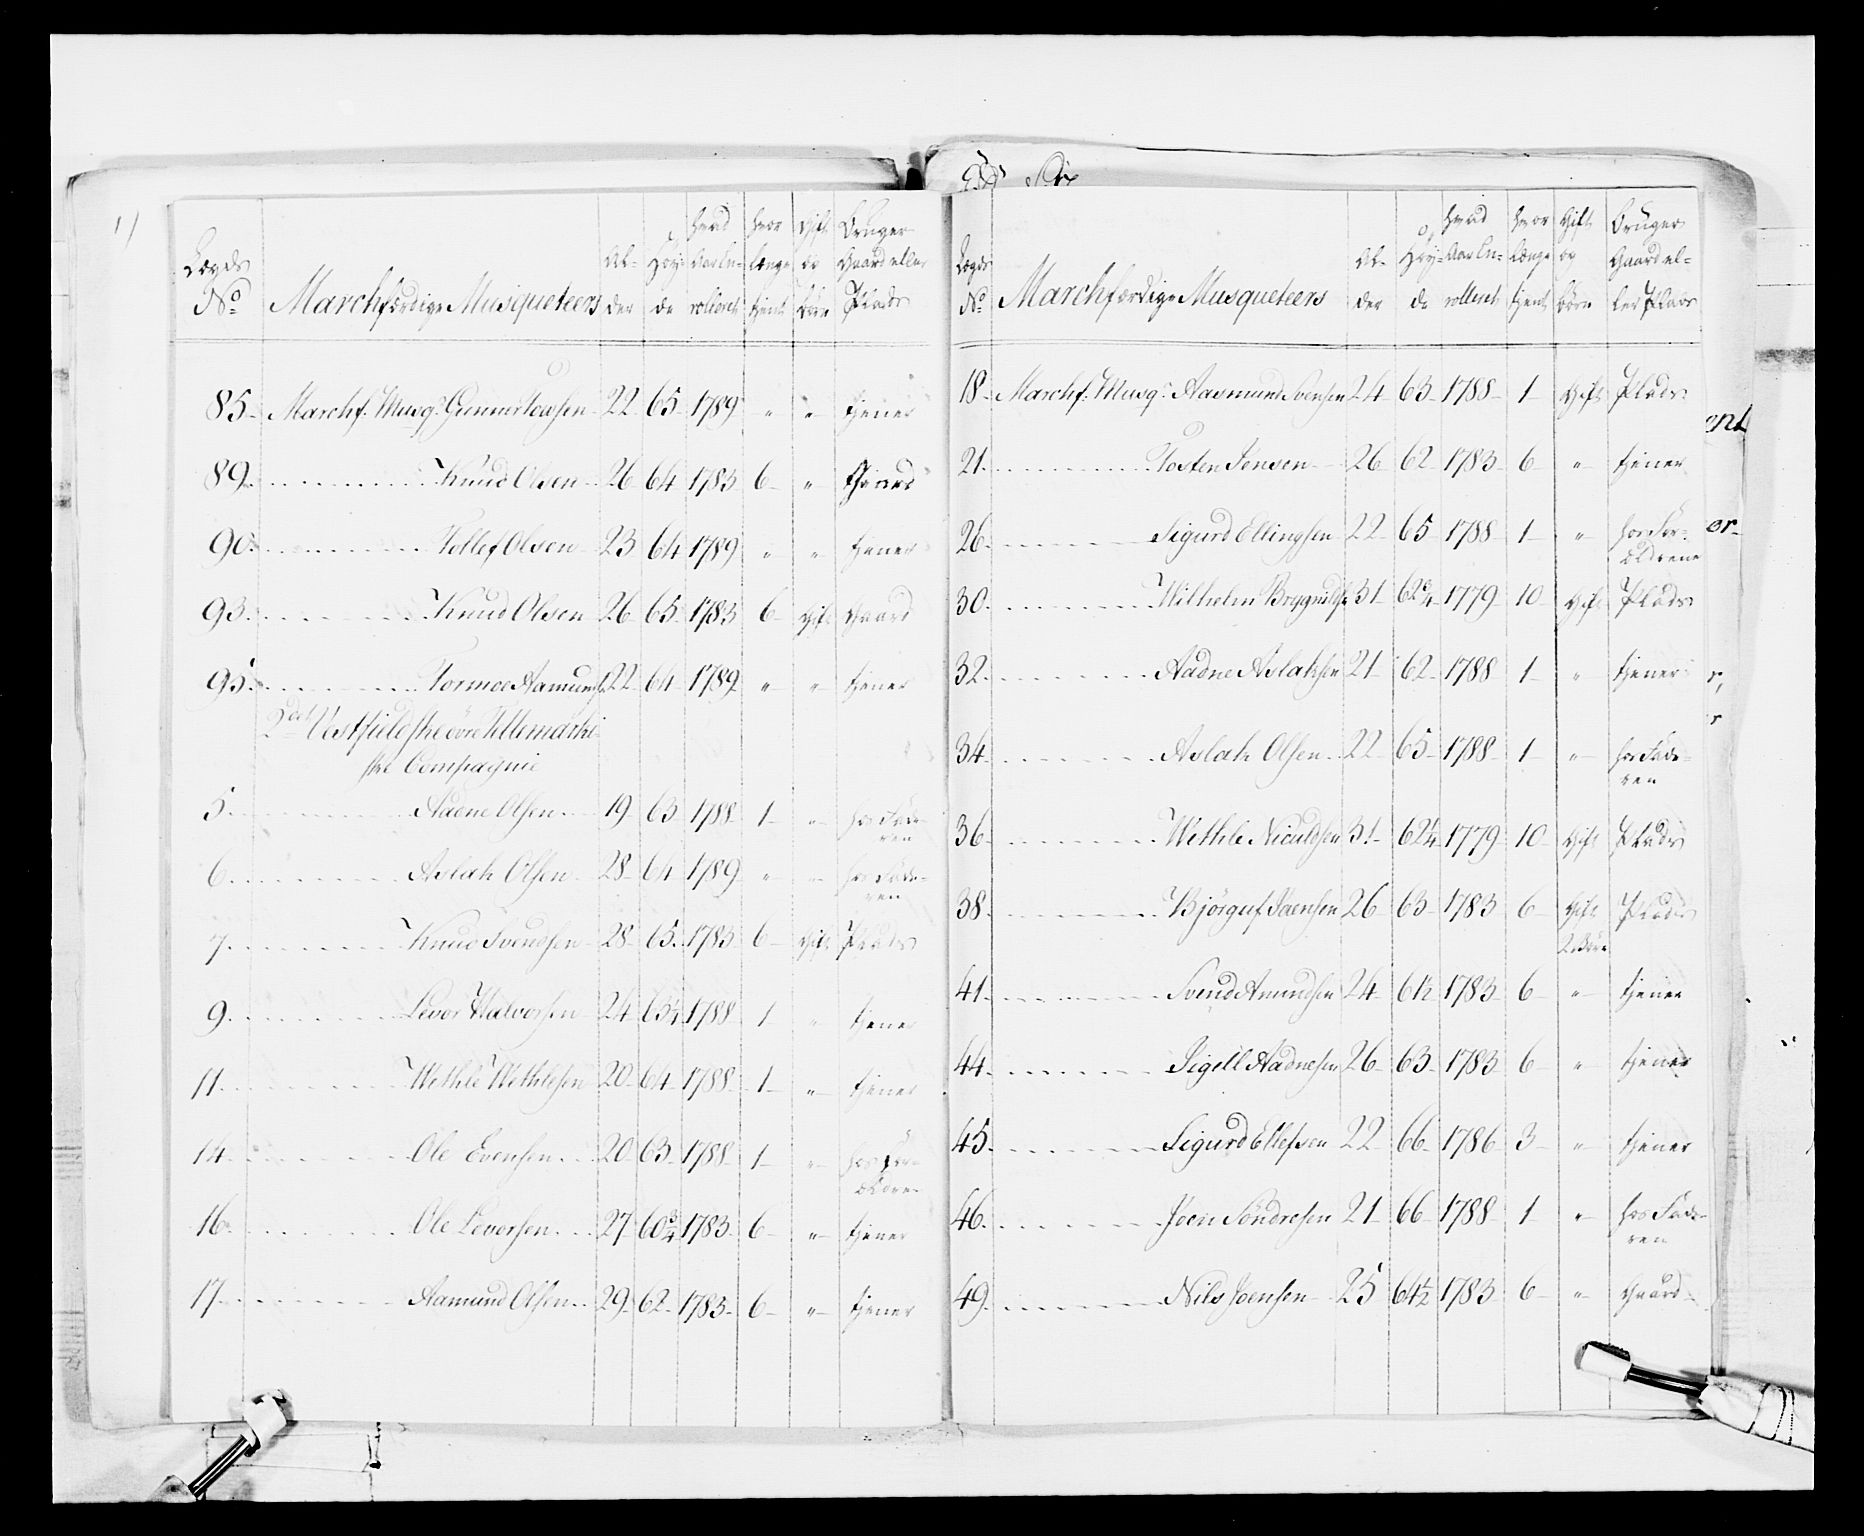 Lægds No Marchfærdige Musqueteers Al- der Höy- de hvad Aar En- rolleret hvor længe tient Gift og Börn Bruger Gaard eller Plads
85. Marchf. Musqr. Gunner 22 65 1789 " " tjener
89. Knud Olsen 26 64 1783 6 " tjener
90. Tollef Olsen 23 64 1789 " " tjener
93. Knud Olsen 26 65 1783 6 gift Gaard
95. Tormoe Aamunds 22 64 1789 " " tjener
2det Vestfieldske övre Tellemarki
ske Compagnie
5. Aadne Olsen 19 63 1788 1 " hos Fade-
ren
6. Aslak Olsen 28 64 1789 " " hos Fade-
ren
7. Knud Svendsen 28 65 1783 6 gift Plads
9. Levor Halvorsen 24 63¼ 1788 1 " tjener
11. Wethle Wethlesen 20 64 1788 1 " tjener
14. Ole Evensen 20 63 1788 1 " hos For-
ældre
16. Ole Levorsen 27 60¾ 1783 6 " tjener
17. Aamund Olsen 29 62 1783 6 " tjener
Lægds No Marchfærdige Musqueteers Al- der Höy- de hvad Aar En- rolleret hvor længe tjent Gift og börn bruger Gaard el- ler Plads
18. Marchf. Musqr. Aasmund Svensen 24 63 1788 1 gift Plads
21. Tosten Jensen 26 62 1783 6 " tjener
26. Sigurd Ellingsen 22 65 1788 1 " hos For-
ældrene
30. Wilhelm 31 62¾ 1779 10 gift Plads
32. Aadne Aslaksen 21 62 1788 1 " tjener
34. Aslak Olsen 22 65 1788 1 " hos Fade-
ren
36. Wethle Niculdsen 31 62¼ 1779 10 gift Plads
38. Björguf Joensen 26 63 1783 6 gift Plads
2 Börn
41. Svend Amundsen 24 61½ 1783 6 " tjener
44. Sigell Aadnesen 26 63 1783 6 " tjener
45. Sigurd Ellefsen 22 66 1786 3 " tjener
46. Joen Söndresen 21 66 1788 1 " hos Fade-
ren
49. Nils Joensen 25 64½ 1783 6 " Gaard